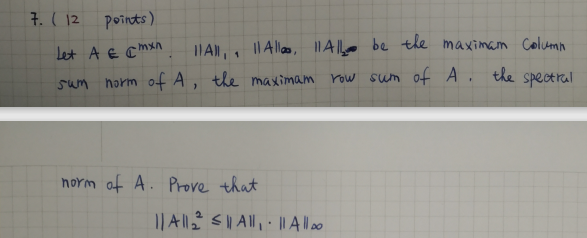 7. ( 12 points)
Let A ∈ ℂ^{m×n}. ||A||₁, ||A||∞, ||A||₂ be the maximam Column
sum norm of A, the maximam row sum of A. the spectral
norm of A. Prove that
||A||₂² ≤ ||A||₁ · ||A||∞